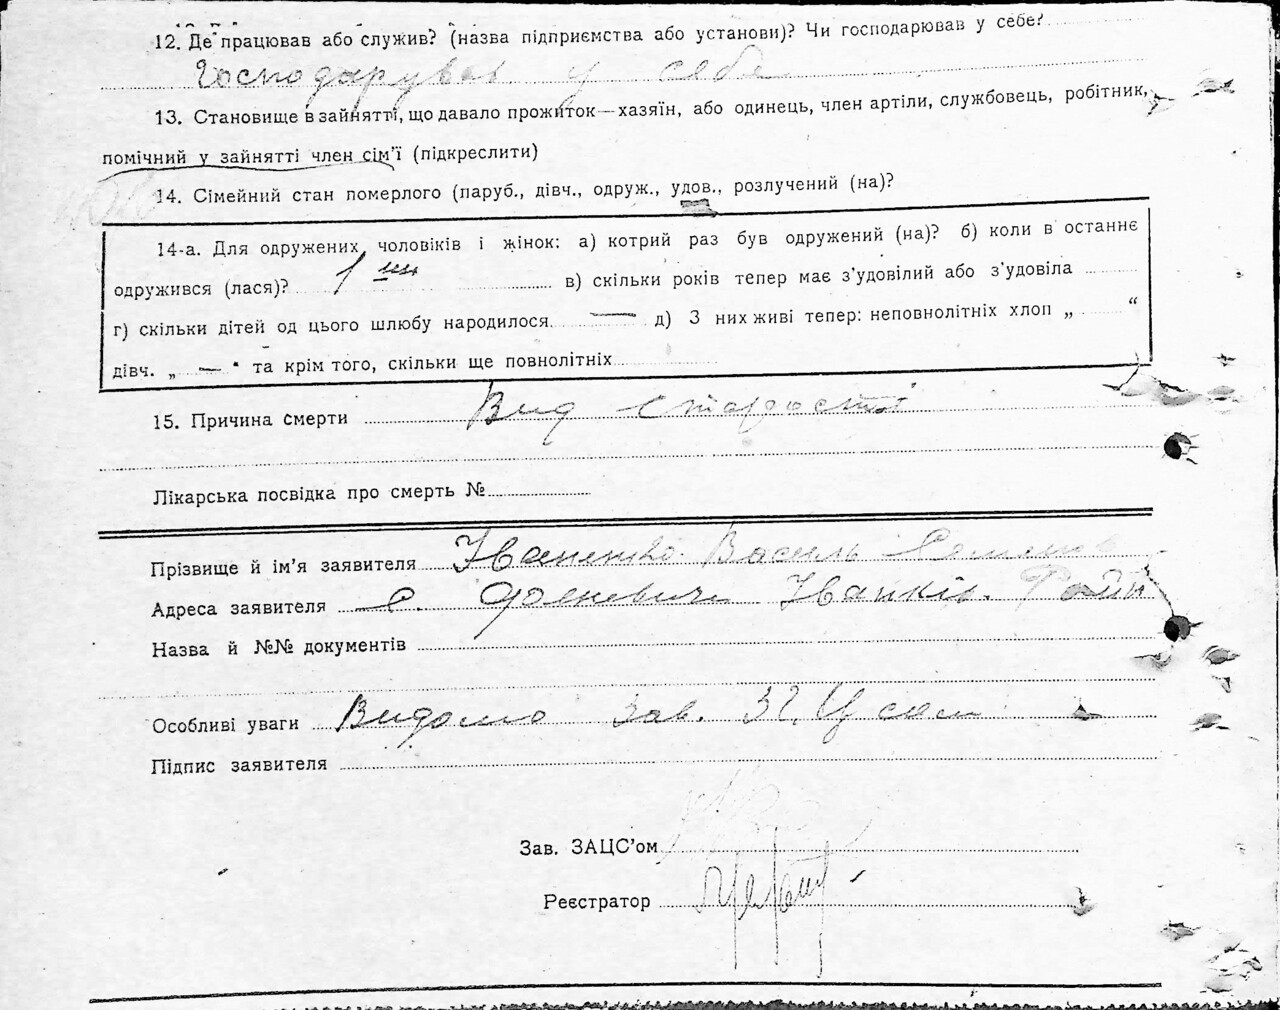 12. Де працював або служив? (назва підприємства або установи)? Чи господарював у себе?
Господарував у себе
13. Становище в зайнятті, що давало прожиток—хазяїн, або одинець, член артіли, службовець, робітник,
помічний у зайнятті член сім'ї (підкреслити)
14. Сімейний стан померлого (паруб., дівч., одруж., удов., розлучений (на)?
14-а. Для одружених чоловіків і жінок: а) котрий раз був одружений (на)? б) коли в останнє
одружився (лася)? 1 в) скільки років тепер має з'удовілий або з'удовіла
г) скільки дітей од цього шлюбу народилося. — д) З них живі тепер: неповнолітніх хлоп „ “
дівч. „ — “ та крім того, скільки ще повнолітніх
15. Причина смерти Вид старости
Лікарська посвідка про смерть №
Прізвище й ім'я заявителя Іваненко Василь
Адреса заявителя с. Іванків.
Назва й №№ документів
Особливі уваги Видомо Зав.
Підпис заявителя
Зав. ЗАЦС'ом
Реєстратор